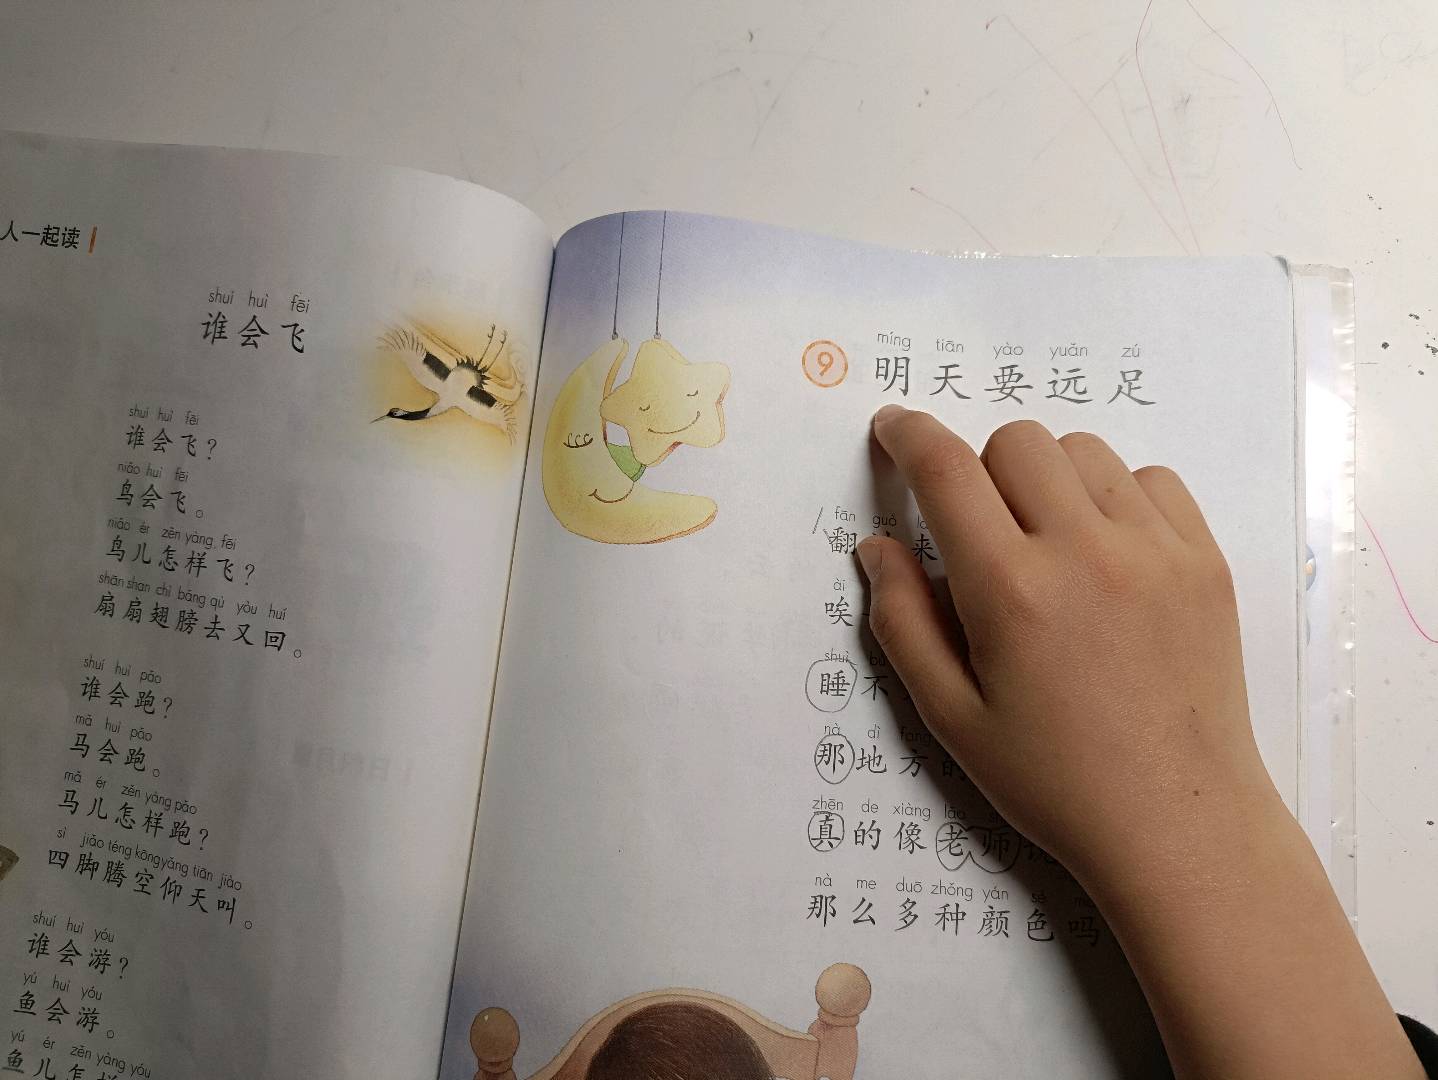 人一起读
shuí huì fēi
谁会飞
shuí huì fēi
谁会飞？
niǎo huì fēi
鸟会飞。
niǎo ér zěn yàng fēi
鸟儿怎样飞？
shān shan chì bǎng qù yòu huí
扇扇翅膀去又回。
shuí huì pǎo
谁会跑？
mǎ huì pǎo
马会跑。
mǎ ér zěn yàng pǎo
马儿怎样跑？
sì jiǎo téng kōng yǎng tiān jiào
四脚腾空仰天叫。
shuí huì yóu
谁会游？
yú huì yóu
鱼会游。
yú ér zěn yàng yóu
鱼儿怎
míng tiān yào yuǎn zú
9 明天要远足
fān guò
翻 来
ài
唉
shuì bù
睡不
nà dì fang
那地方的
zhēn de xiàng lǎo
真的像老师
nà me duō zhǒng yán sè
那么多种颜色吗